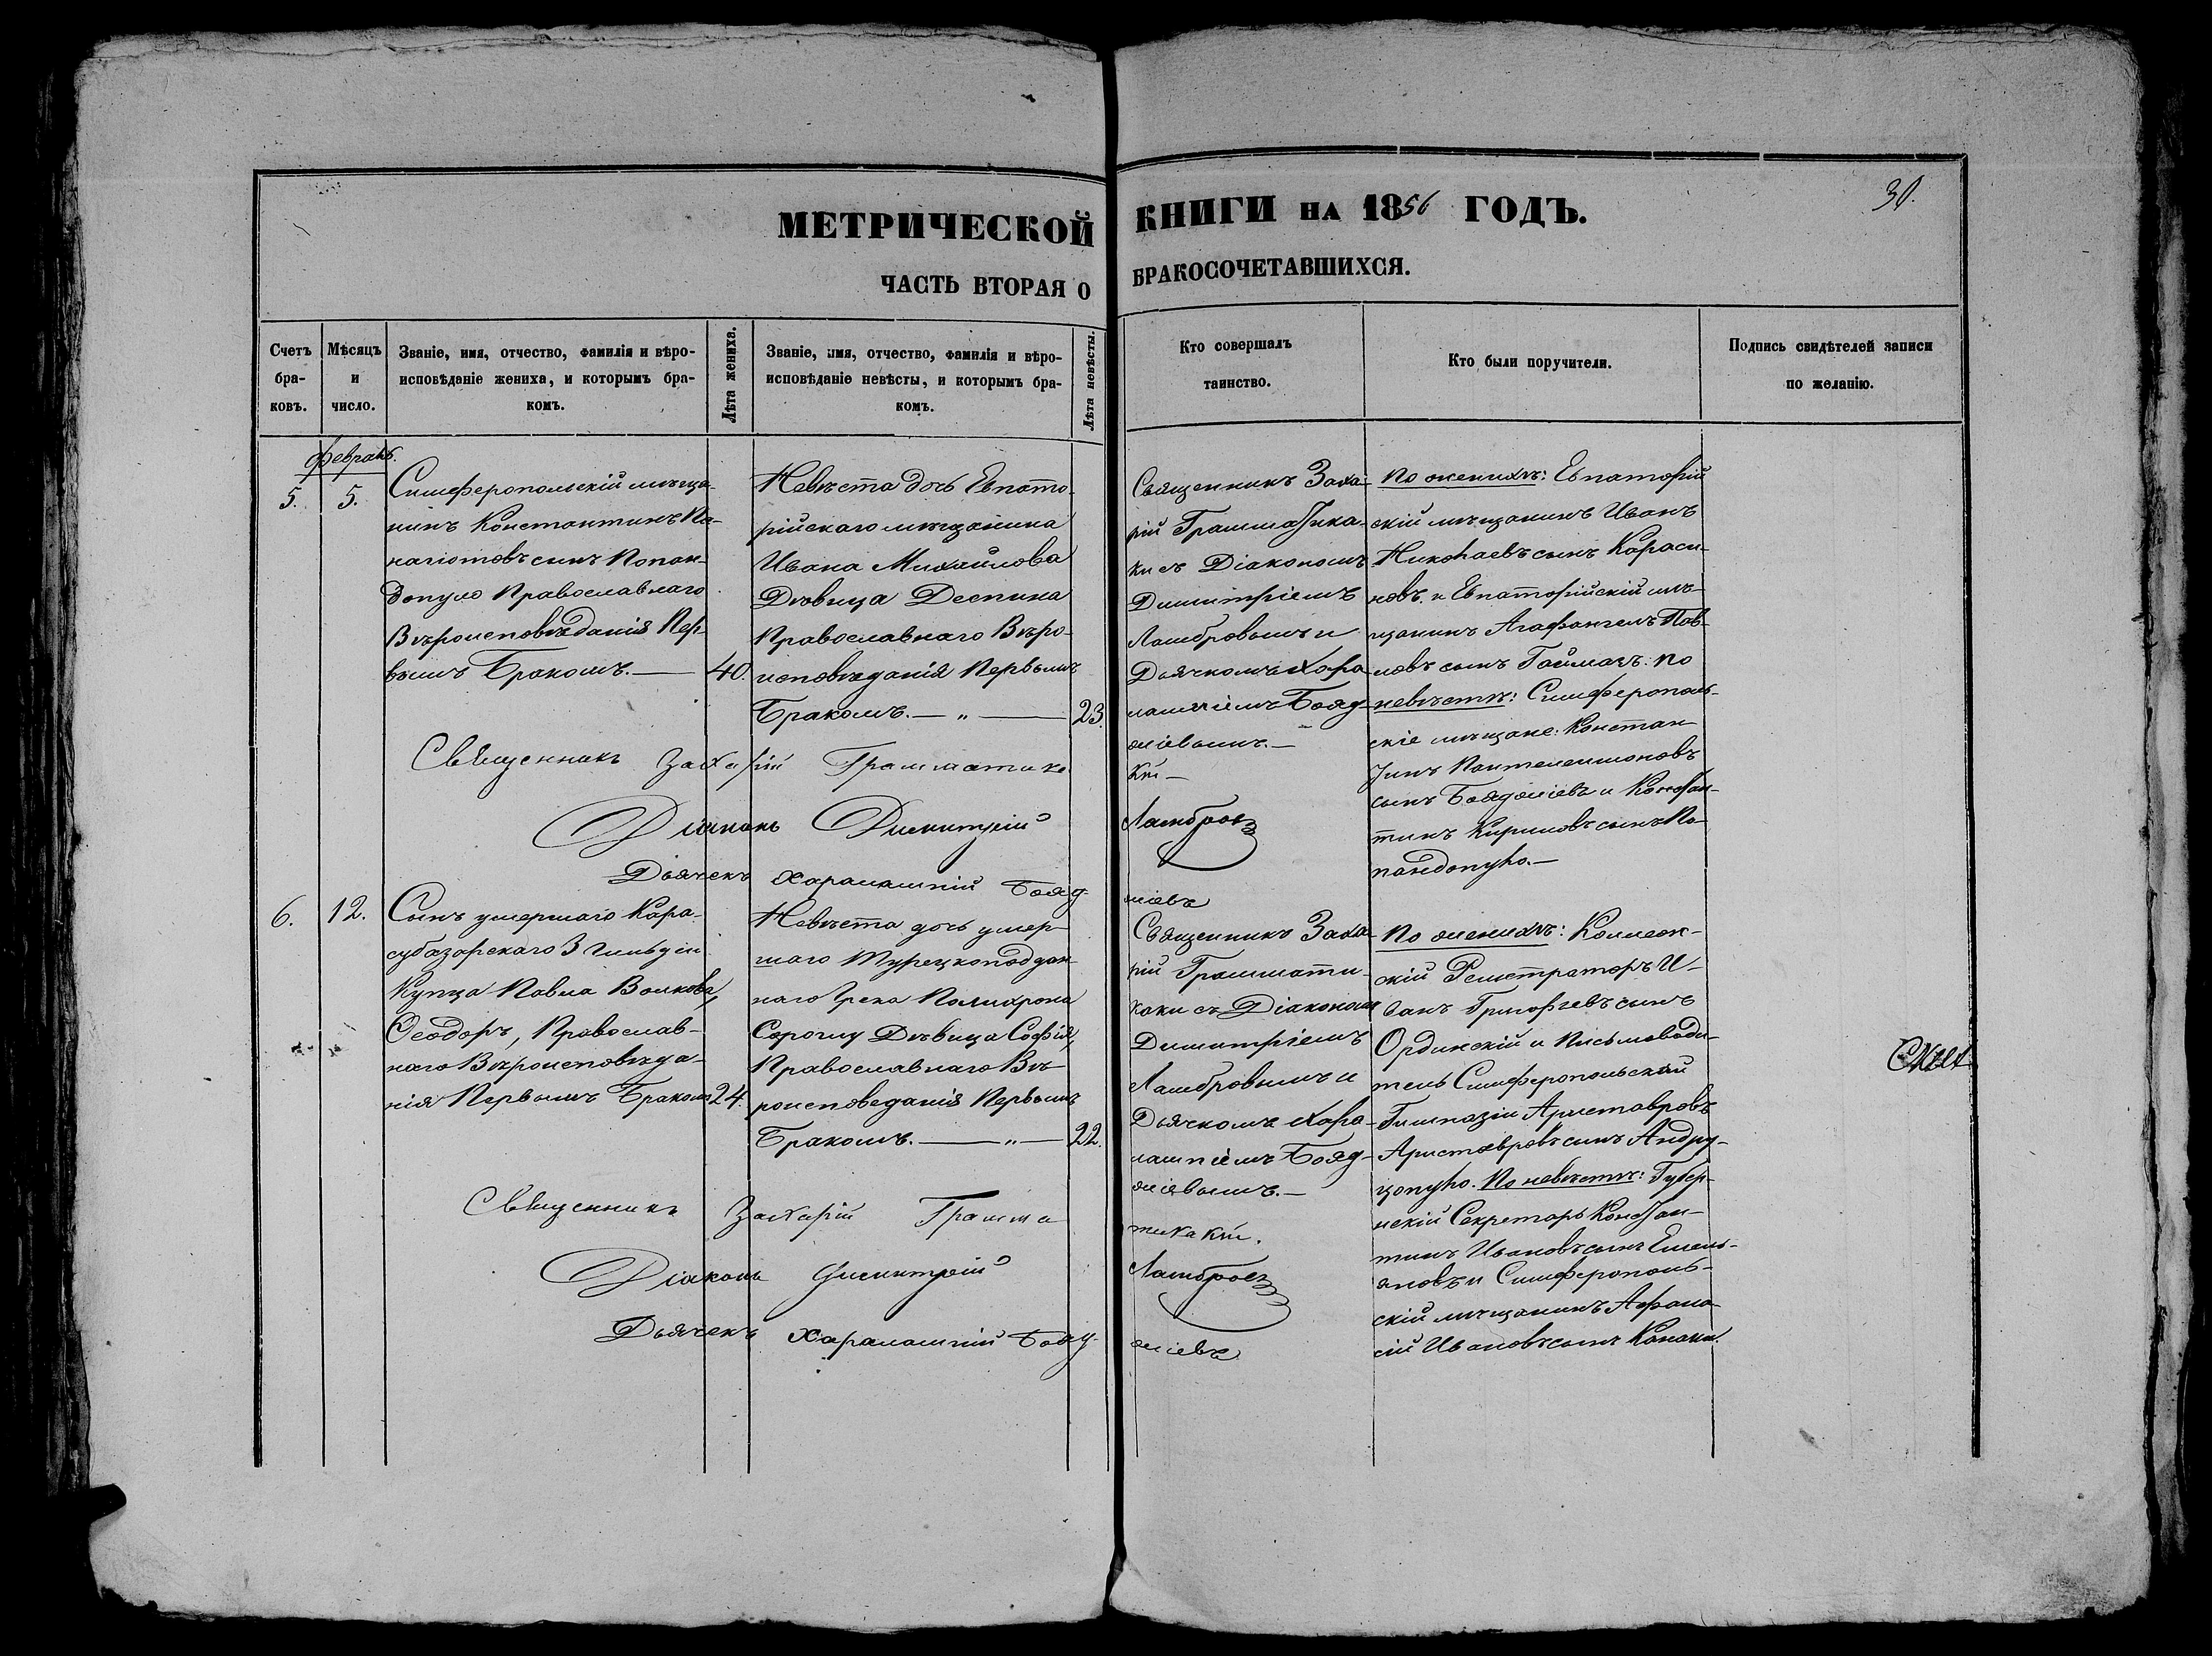 МЕТРИЧЕСКОЙ КНИГИ НА 1856 ГОДЪ.
30.
ЧАСТЬ ВТОРАЯ О БРАКОСОЧЕТАВШИХСЯ.
Счетъ
бра-
ковъ.
Мѣсяцъ
и
число.
Званіе, имя, отчество, фамилія и вѣро-
исповѣданіе жениха, и которымъ бра-
комъ.
Лѣта жениха.
Званіе, имя, отчество, фамилія и вѣро-
исповѣданіе невѣсты, и которымъ бра-
комъ.
Лѣта невѣсты.
Кто совершалъ
таинство.
Кто были поручители.
Подпись свидѣтелей записи
по желанію.
5.
Февраль.
5.
Симферопольскій мѣща-
нинъ Константинъ Па-
нагіотовъ сынъ Папан-
допуло Православнаго
Вѣроисповѣданія Пер-
вымъ Бракомъ. —
40.
Невѣста дочь Евпато-
рійскаго мѣщанина
Ивана Михайлова
Дѣвица Деспина
Православнаго Вѣро-
исповѣданія Первымъ
Бракомъ. — „ —
23.
Священникъ Заха-
рій Грамматика-
ки съ Діакономъ
Димитріемъ
Ламбровымъ и
Дьячкомъ Хара-
лампіемъ Бояд-
жіевымъ. —
По женихѣ: Евпаторій
скій мѣщанинъ Иванъ
Николаевъ сынъ Караси-
новъ. и Евпаторійскій мѣ-
щанинъ Агафангелъ Пав-
ловъ сынъ Гаймачъ: по
невѣстѣ: Симферополь-
скіе мѣщане: Констан-
тинъ Пантелеимоновъ
сынъ Бояджіевъ и Констан-
тинъ Кириловъ сынъ Па-
пандопуло. —
Священникъ Захарій Грамматика
Кій —
Діаконъ Димитрій Ламбровъ
Дьячекъ Харалампій Бояд
жіевъ
6.
12.
Сынъ умершаго Кара-
субазарскаго 3 гильдіи
Купца Павла Волкова,
Ѳеодоръ, Православ-
наго Вѣроисповѣда-
нія Первымъ Бракомъ
24.
Невѣста дочь умер-
шаго Турецкоподдан-
наго Грека Полихрона
Сорочлу Дѣвица Софія,
Православнаго Вѣ-
роисповеданія Первымъ
Бракомъ. — „ —
22.
Священникъ Заха-
рій Граммати-
каки съ Діакономъ
Димитріемъ
Ламбровымъ и
Дьячкомъ Хара-
лампіемъ Бояд-
жіевымъ. —
По женихѣ: Коллеж-
скій Регистраторъ И-
ванъ Григорьевъ сынъ
Ординскій и Письмоводи-
тель Симферопольской
Гимназіи Ариставровъ
Ариставровъ сынъ Андру-
цопуло. По невѣстѣ: Губер-
нскій Секретарь Констан-
тинъ Ивановъ сынъ Емель-
яновъ и Симферополь-
скій мѣщанинъ Афана-
сій Ивановъ сынъ Канаки.
Священникъ Захарій Грамма
тикакій.
Діаконъ Димитрій Ламбровъ
Дьячекъ Харалампій Бояд-
жіевъ